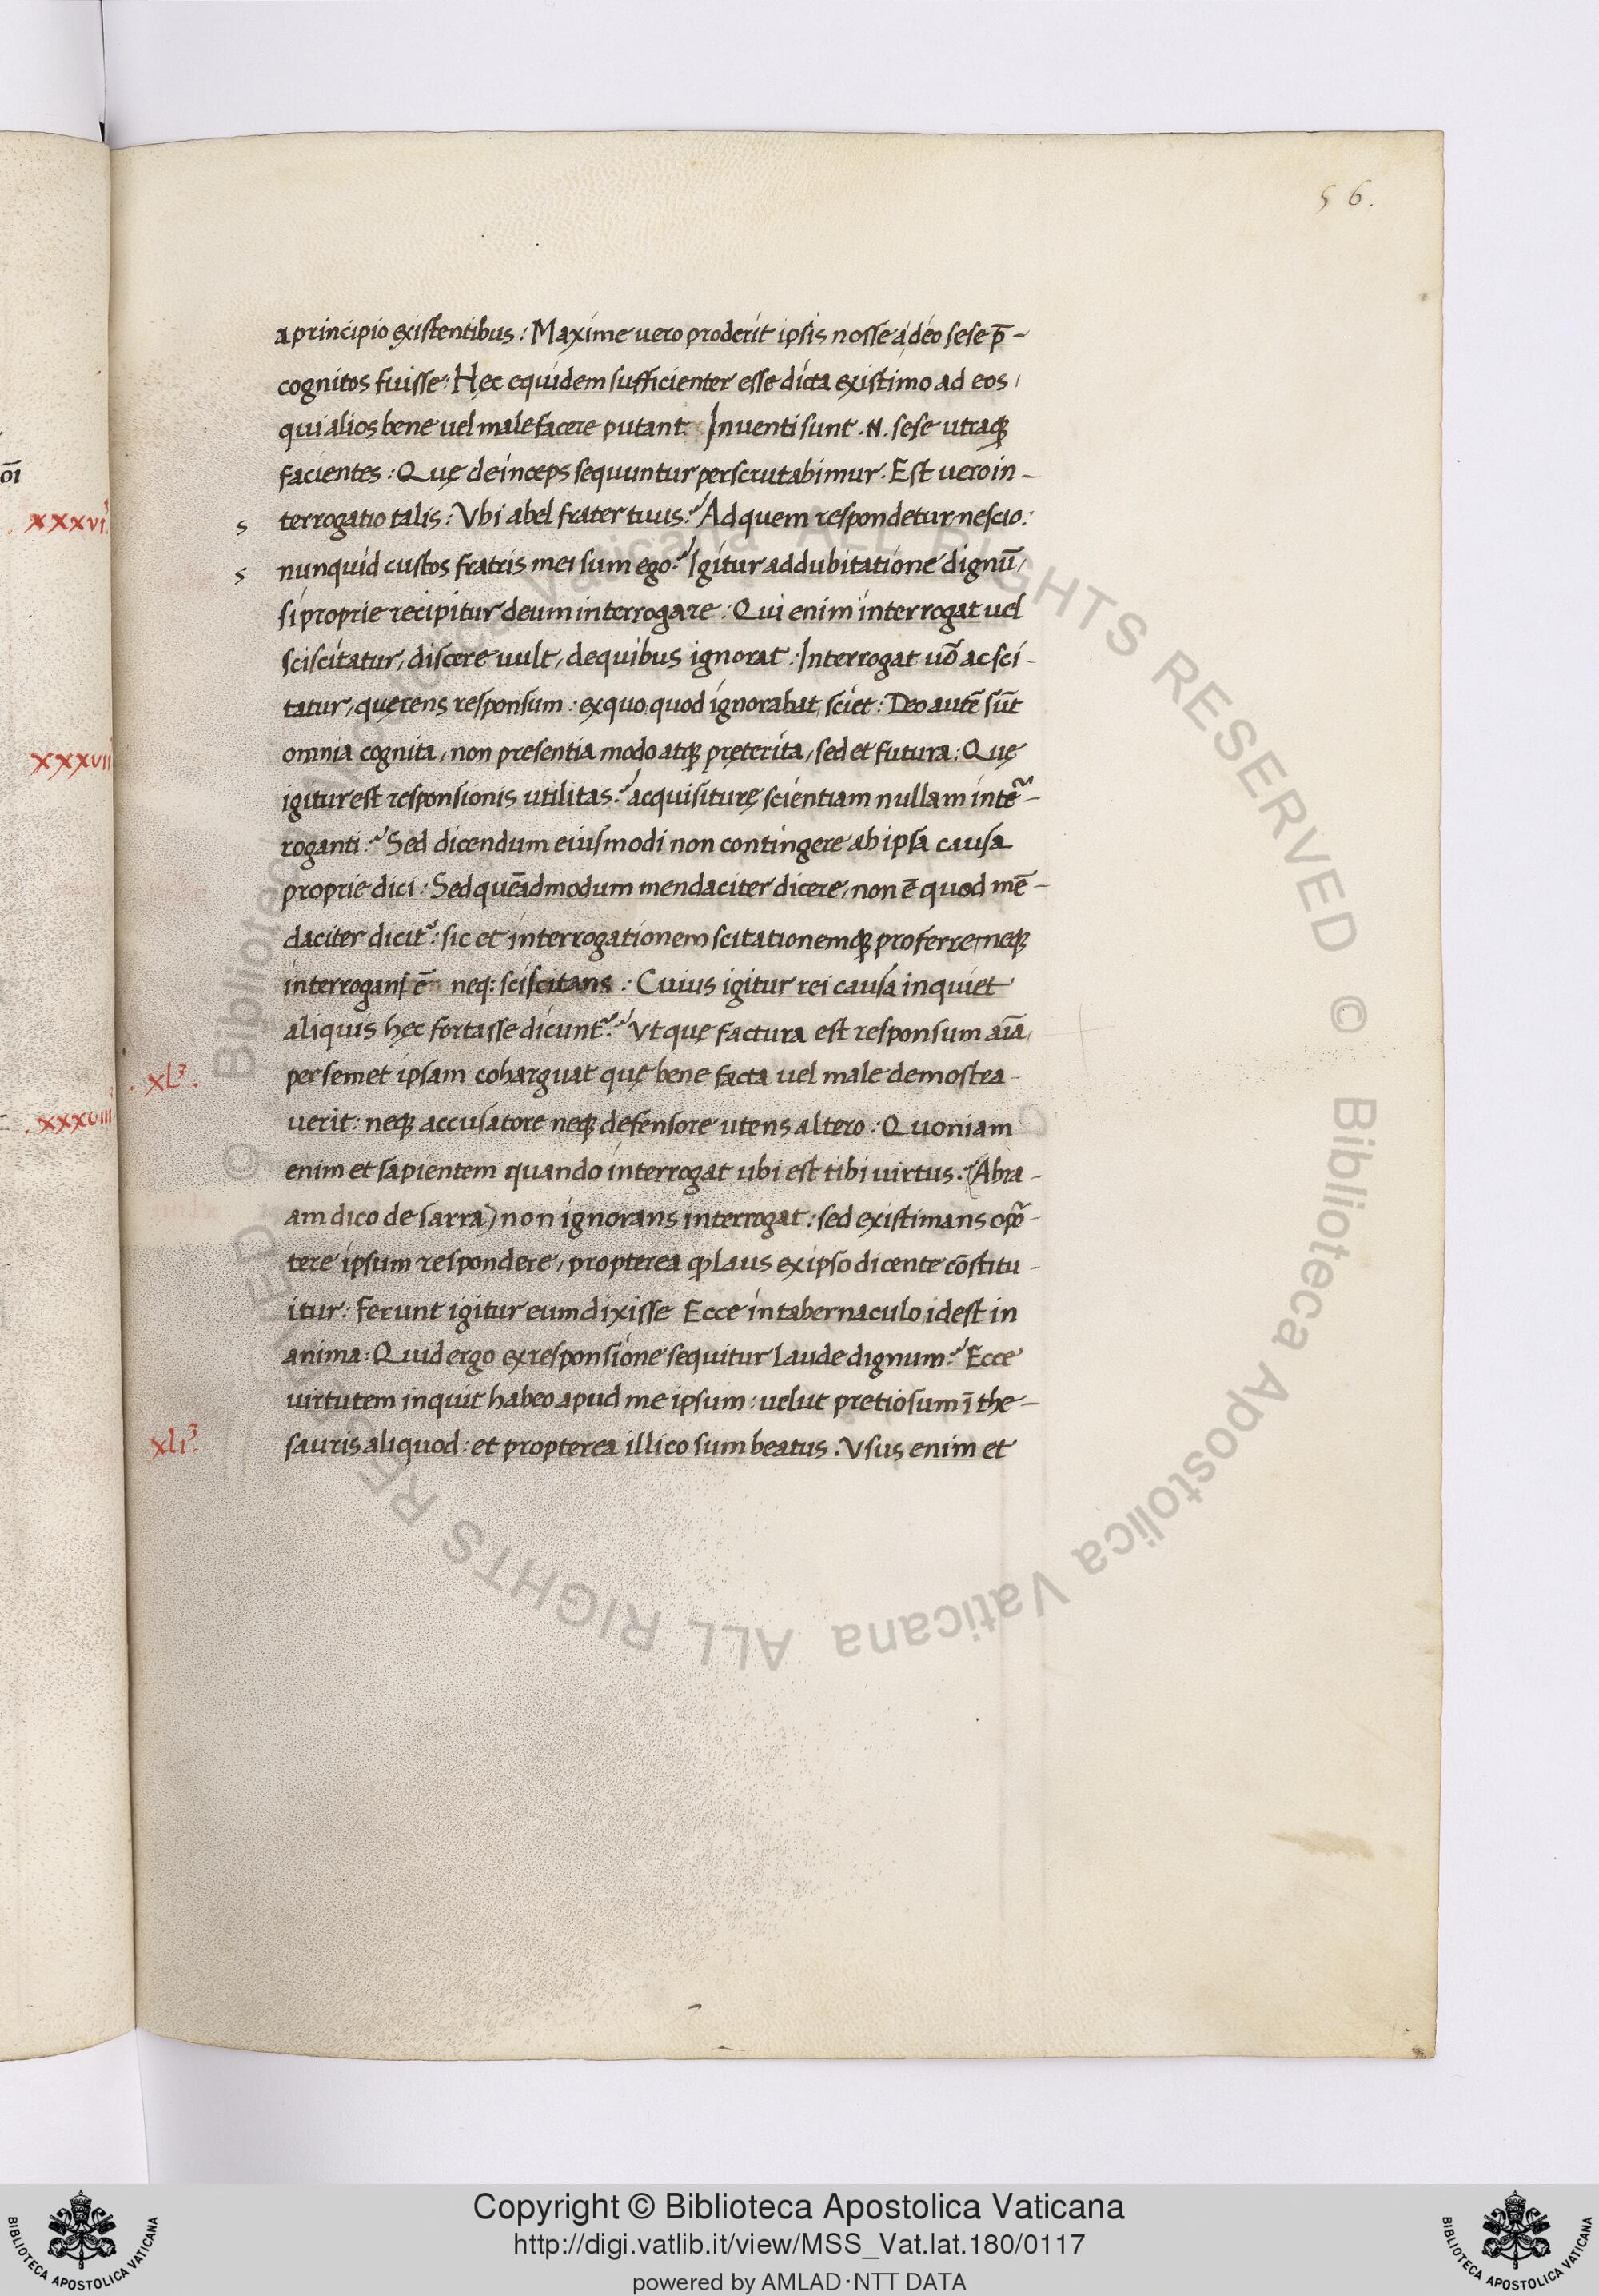 56.
a principio existentibus: Maxime vero proderit ipsis nosse a deo sese p̄-
cognitos fuisse: Hęc equidem sufficienter esse dicta existimo ad eos,
qui alios bene vel male facere putant. Inventi sunt .N. sese utraqꝫ
facientes: Quę deinceps sequuntur perscrutabimur. Est vero in-
xxxvi.
s terrogatio talis: Vbi abel frater tuus? Ad quem respondetur nescio:
s nunquid custos fratris mei sum ego? Igitur addubitatione dignū,
si proprie recipitur deum interrogare: Qui enim interrogat vel
sciscitatur, discere vult, de quibus ignorat: Interrogat uō ac sci-
tatur, quęrens responsum: ex quo quod ignorabat, sciet: Deo autē sūt
xxxvii
omnia cognita, non presentia modo atqꝫ pręterita, sed et futura: Quę
igitur est responsionis utilitas? acquisiturę scientiam nullam inter-
roganti? Sed dicendum eiusmodi non contingere ab ipsa causa
proprie dici: Sed quēadmodum mendaciter dicere, non ē quod mē-
daciter dicit᷑: sic et interrogationem scitationemqꝫ proferre, neqꝫ
interrogans ē neq: sciscitans: Cuius igitur rei causa inquiet
aliquis hęc fortasse dicunt᷑? Vt quę factura est responsum aīa,
xL.
per semet ipsam coharguat quę bene facta vel male demostra-
xxxviii
verit: neqꝫ accusatore neqꝫ defensore utens altero: Quoniam
enim et sapientem quando interrogat ubi est tibi virtus? (Abra-
am dico de sarra) non ignorans interrogat: sed existimans opor-
tere ipsum respondere, propterea ꝙ laus ex ipso dicente cōstitu-
itur: ferunt igitur eum dixisse Ecce in tabernaculo, idest in
anima: Quid ergo ex responsione sequitur laude dignum? Ecce
virtutem inquit habeo apud me ipsum: velut pretiosum ī the-
xli.
sauris aliquod: et propterea illico sum beatus. Vsus enim et
© Biblioteca Apostolica Vaticana ALL RIGHTS RESERVED © Biblioteca Apostolica Vaticana ALL RIGHTS RESERVED
Copyright © Biblioteca Apostolica Vaticana
http://digi.vatlib.it/view/MSS_Vat.lat.180/0117
powered by AMLAD·NTT DATA
BIBLIOTECA APOSTOLICA VATICANA
BIBLIOTECA APOSTOLICA VATICANA